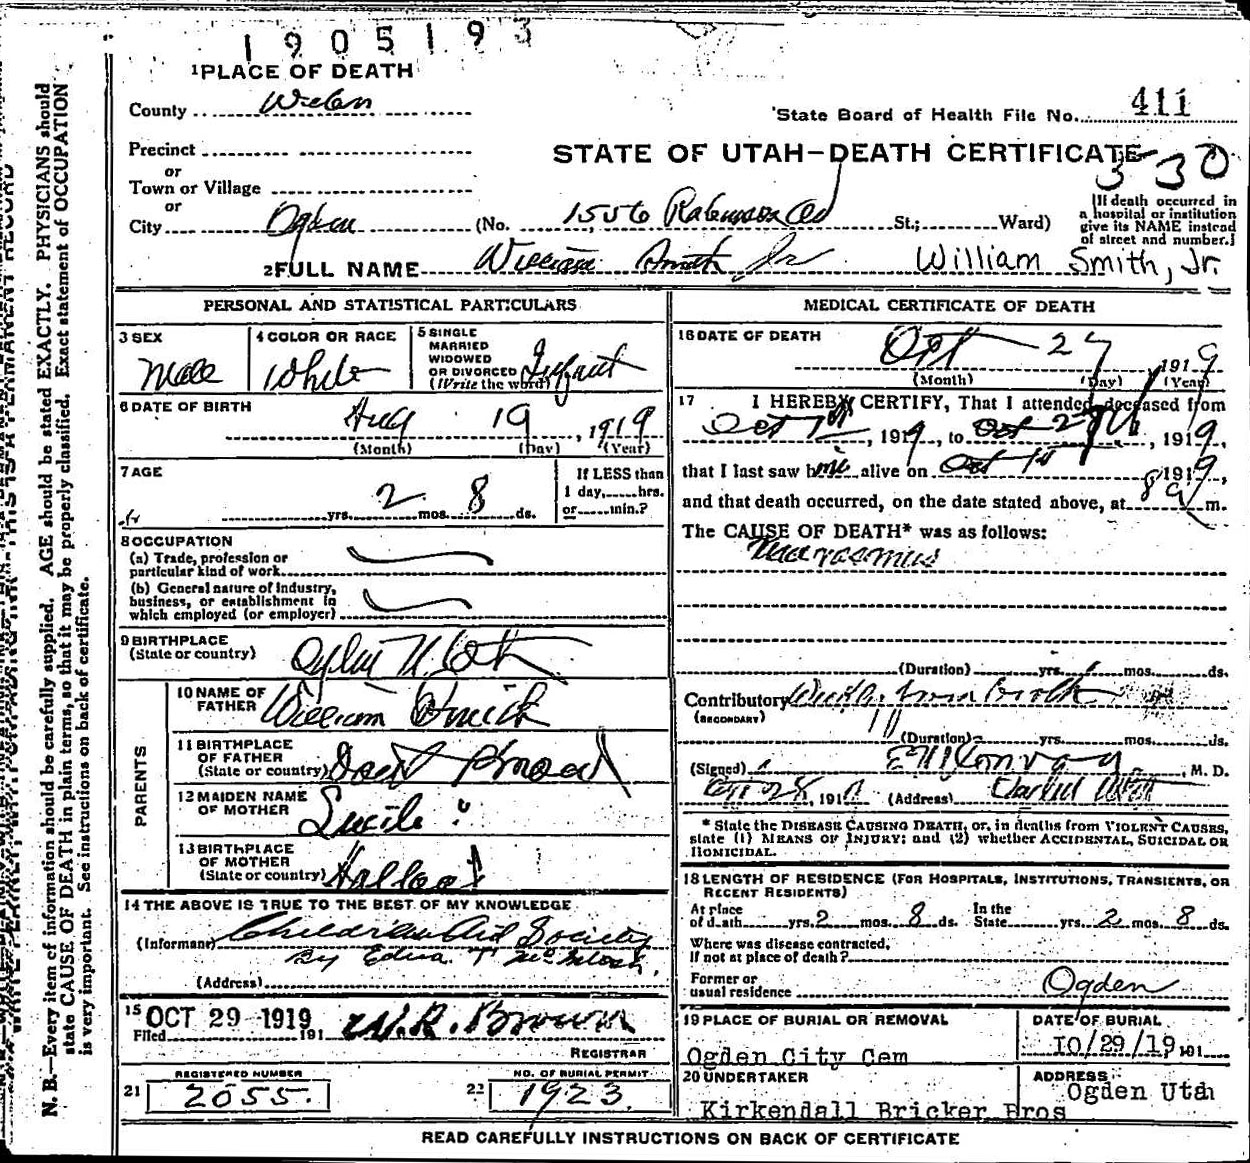 1905193
1 PLACE OF DEATH
County Weber
State Board of Health File No. 411
Precinct
or
Town or Village
or
STATE OF UTAH—DEATH CERTIFICATE
330
City Ogden (No. 1556 Robinson St.; Ward)
[If death occurred in a hospital or institution give its NAME instead of street and number.]
2 FULL NAME William Smith Jr William Smith, Jr.
PERSONAL AND STATISTICAL PARTICULARS
3 SEX
Male
4 COLOR OR RACE
White
5 SINGLE
MARRIED
WIDOWED
OR DIVORCED
(Write the word)
Infant
6 DATE OF BIRTH
Aug 19, 1919
(Month) (Day) (Year)
7 AGE
yrs. 2 mos. 8 ds.
If LESS than
1 day, hrs.
or min.?
8 OCCUPATION
(a) Trade, profession or
particular kind of work
(b) General nature of industry,
business, or establishment in
which employed (or employer)
9 BIRTHPLACE
(State or country)
Ogden Utah
PARENTS
10 NAME OF
FATHER
William Smith
11 BIRTHPLACE
OF FATHER
(State or country)
12 MAIDEN NAME
OF MOTHER
Lucile
13 BIRTHPLACE
OF MOTHER
(State or country)
14 THE ABOVE IS TRUE TO THE BEST OF MY KNOWLEDGE
(Informant) Childrens Aid Society
By Edna T
(Address)
15
Filed OCT 29 1919 191 W.R. Brown
REGISTRAR
21 REGISTERED NUMBER
2055.
22 NO. OF BURIAL PERMIT
1923
MEDICAL CERTIFICATE OF DEATH
16 DATE OF DEATH
Oct 27 1919
(Month) (Day) (Year)
17 I HEREBY CERTIFY, That I attended deceased from
Oct 1st, 1919, to Oct 27th, 1919,
that I last saw him alive on Oct 1919,
and that death occurred, on the date stated above, at 8 a m.
The CAUSE OF DEATH* was as follows:
Marasmus
(Duration) yrs. mos. ds.
Contributory from birth
(SECONDARY)
(Duration) yrs. mos. ds.
(Signed) E M Conroy, M. D.
28, 191 (Address)
* State the DISEASE CAUSING DEATH, or, in deaths from VIOLENT CAUSES,
state (1) MEANS OF INJURY; and (2) whether ACCIDENTAL, SUICIDAL OR
HOMICIDAL.
18 LENGTH OF RESIDENCE (FOR HOSPITALS, INSTITUTIONS, TRANSIENTS, OR
RECENT RESIDENTS)
At place
of death yrs. 2 mos. 8 ds. In the
State yrs. 2 mos. 8 ds.
Where was disease contracted,
If not at place of death?
Former or
usual residence Ogden
19 PLACE OF BURIAL OR REMOVAL
Ogden City Cem
DATE OF BURIAL
10/29/19, 191
20 UNDERTAKER
Kirkendall Bricker Bros
ADDRESS
Ogden Utah
READ CAREFULLY INSTRUCTIONS ON BACK OF CERTIFICATE
N. B.—Every item of information should be carefully supplied. AGE should be stated EXACTLY. PHYSICIANS should
state CAUSE OF DEATH in plain terms, so that it may be properly classified. Exact statement of OCCUPATION
is very important. See instructions on back of certificate.